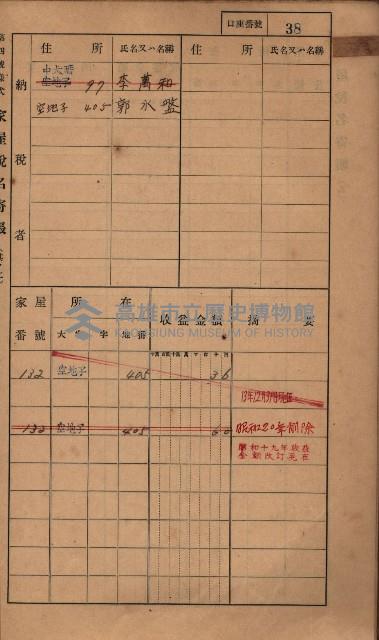 口座番號 38
第四號樣式 家屋稅名寄帳
納稅者
住所 氏名又ハ名稱 住所 氏名又ハ名稱
中大厝
空地子 97 李萬和
空地子 405 郭水盤
家屋番號 所在 收益金額 摘要
大字 字 地番
高雄市立歷史博物館
KAOHSIUNG MUSEUM OF HISTORY
132 空地子 405 36
13年12月31日現在
132 空地子 405 60 昭和20年削除
昭和十九年收益
金額改訂現在